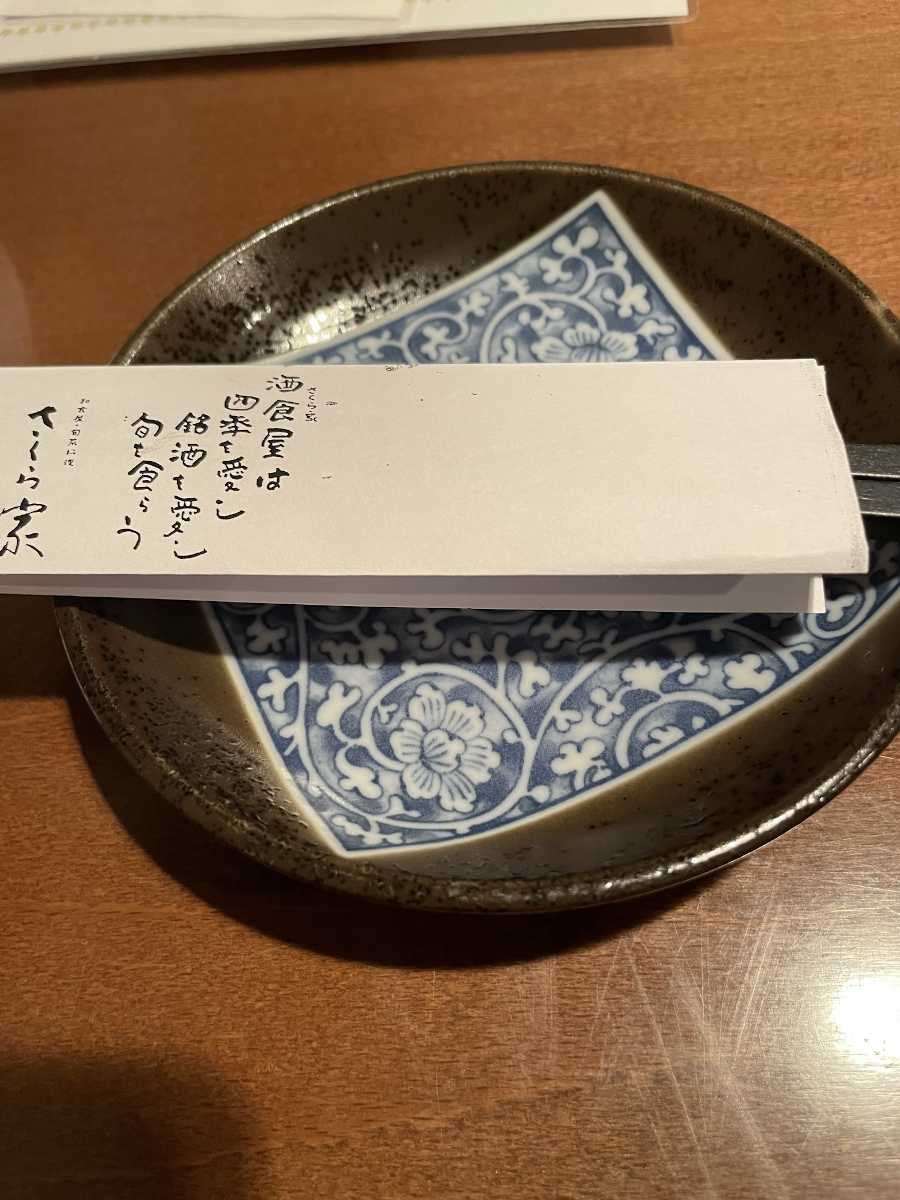 酒食屋は
四季を愛し
銘酒を愛し
旬を食らう
さくら家